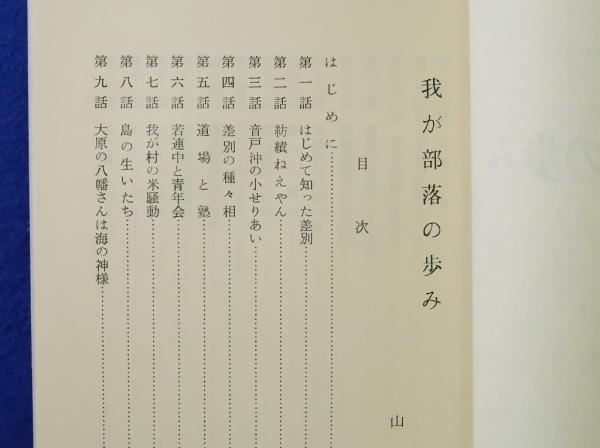 我が部落の歩み
山
目次
はじめに
第一話 はじめて知った差別
第二話 紡績ねえやん
第三話 音戸沖の小せりあい
第四話 差別の種々相
第五話 道場と塾
第六話 若連中と青年会
第七話 我が村の米騒動
第八話 島の生いたち
第九話 大原の八幡さんは海の神様